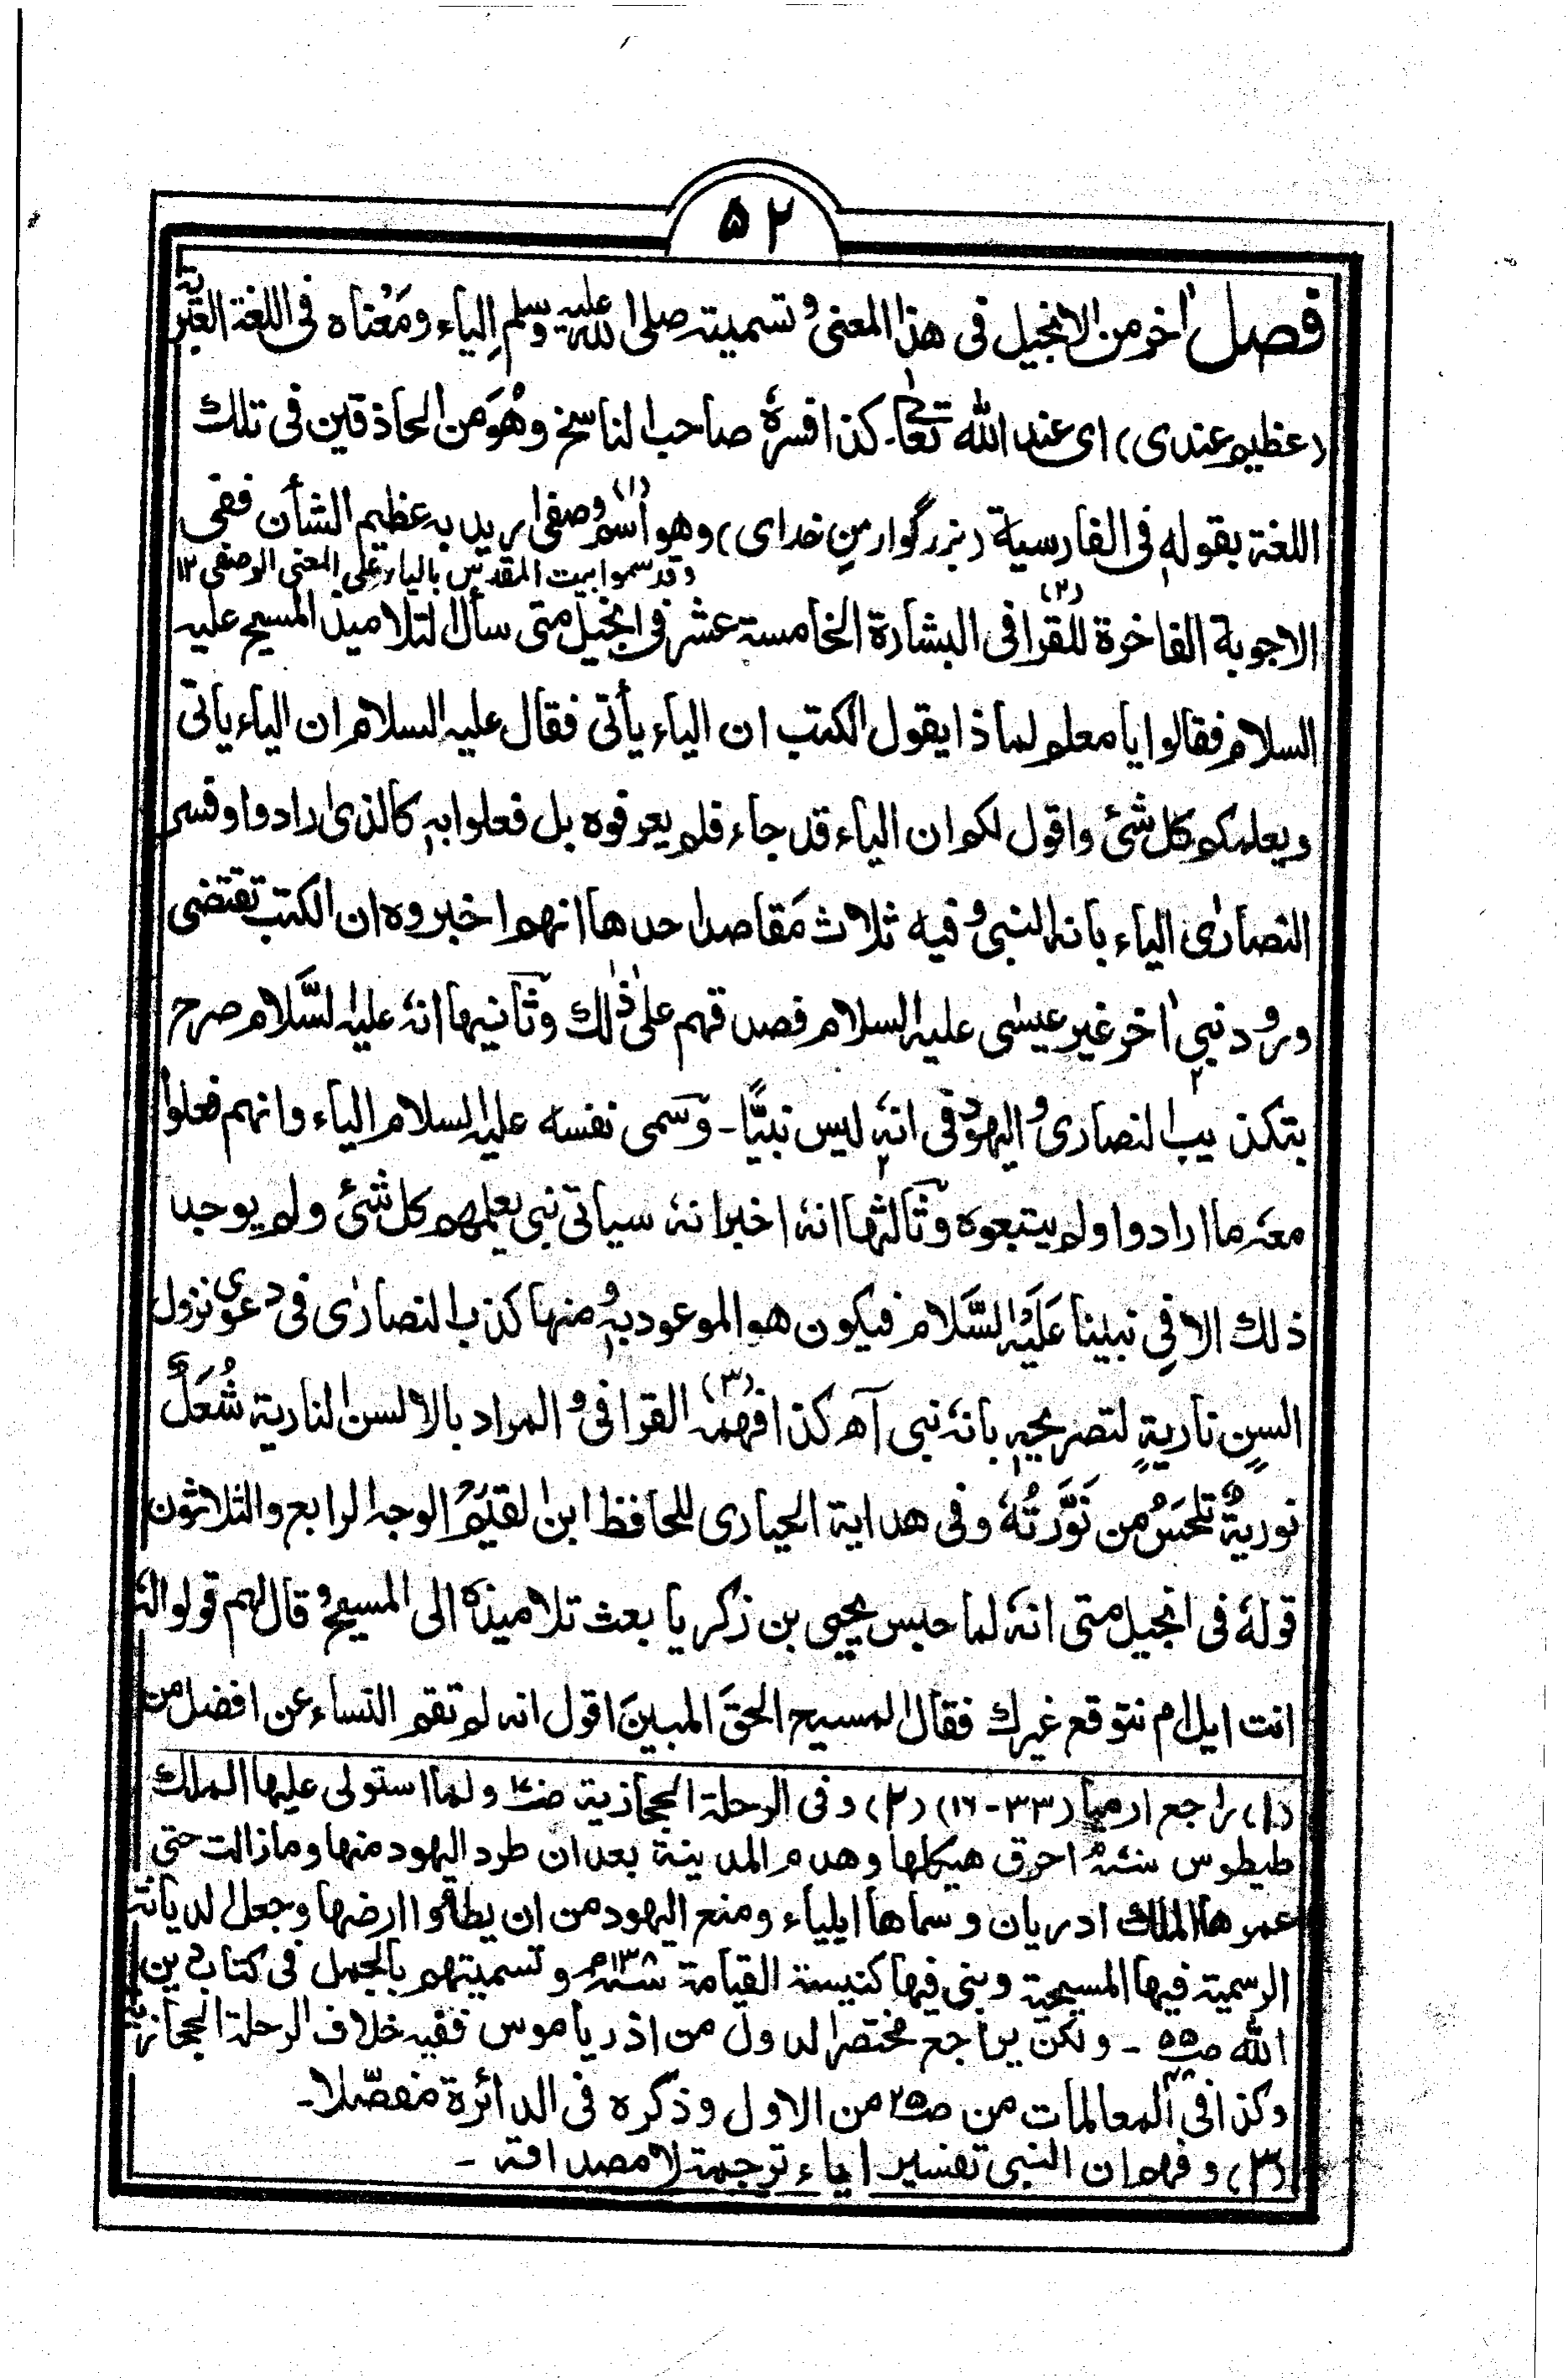 ۵۲
فصل اٰخر من الانجيل فى هذا المعنى و تسميته صلى الله عليه وسلم اِلياء ومَعْناه فى اللغة العبرية
(عظيم عندى) اى عند الله تعالے۔ كذا فسرهٗ صاحب الناسخ وهُوَ من الحاذقين فى تلك
اللغة بقولهٖ فى الفارسية (بزرگوار منِ خداى) وهو اسم (١) وصفى اريد به عظيم الشأن ففى
وقد سموا بيت المقدس بالياء على المعنى الوصفى ١٢
الاجوبة الفاخرة للقرافى (٢) البشارة الخامسة عشر فى انجيل متى سأل لتلاميذ المسيح عليه
السلام فقالوا يا معلم لماذا يقول الكتب ان الياء يأتى فقال عليه السلام ان الياء ياتى
ويعلمكم كل شئ واقول لكم ان الياء قد جاء فلم يعرفوه بل فعلوا بهٖ كالذى ارادوا وفسر
النصارٰى الياء بانه النبى و فيه ثلاث مَقاصد احدها انهم اخبروه ان الكتب تقتضى
ورود نبىٍ اٰخر غير عيسٰى عليه السلام فصدقهم علٰى ذٰلك وثانيها انهٗ عليه السَّلام صرح
بتكذيب النصارى و اليهود فى انهٗ ليس نبيًّا۔ وسمى نفسه عليه السلام الياء وانهم فعلوا
معهٗ ما ارادوا ولم يتبعوه وثالثها انهٗ اخبر انهٗ سياتى نبى يعلمهم كل شئ ولم يوجد
ذلك الا فِى نبينا عَلَيْهِ السَّلام فيكون هو الموعود بهٖ و منها كذب النصارٰى فى دعوى نزول
السنٍ ناريةٍ لتصريحهٖ بانهٗ نبى آھ كذا فهمهٗ (٣) القرافى و المراد بالالسن النارية شُعَلٌ
نوريةٌ تلحَسُ من نَوَّرَتْهُ وفى هداية الحيارى للحافظ ابن القيّم الوجه الرابع والثلاثون
قولهٗ فى انجيل متى انهٗ لما حبس يحيى بن زكريا بعث تلاميذهٗ الى المسيح و قال لهم قولوا له
انت ايل ام نتوقع غيرك فقال المسيح الحقَ المبينَ اقول انه لم تقم النساء عن افضل من
(١) راجع ارميا (٣٣-١٦) (٢) وفى الرحلة الحجازية ولما استولى عليها الملك
طيطوس احرق هيكلها وهدم المدينة بعد ان طرد اليهود منها وما زالت حتى
عمرها الملك ادريان وسماها ايلياء ومنع اليهود من ان يطأوا ارضها وجعل الديانة
الرسمية فيها المسيحية وبنى فيها كنيسة القيامة سنة ١٣٨م وتسميتهم بالجمل فى كتاب دين
الله ص٥٥۔ ولكن يراجع مختصر الدول من اذرياموس ففيه خلاف الرحلة الحجازية
وكذا فى المعالمات من ص٢٥ من الاول وذكره فى الدائرة مفصّلا۔
(٣) وفهم ان النبى تفسير ايلياء ترجمة لا مصداقة۔